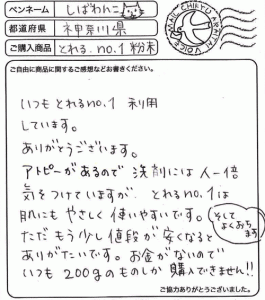 ペンネーム しばわんこ
都道府県 神奈川県
ご購入商品 とれるno.1 粉末
MAIL CHIKYU ARAITAI VOICE
ご自由に商品に関するご感想などお書きください。
いつもとれるno.1 利用
しています。
ありがとうございます。
アトピーがあるので 洗剤には人一倍
気をつけていますが、とれるno.1は
肌にもやさしく使いやすいです。そしてよくおちます
ただもう少し値段が安くなると
ありがたいです。お金がないので
いつも200gのものしか購入できません!!
ご協力ありがとうございました。